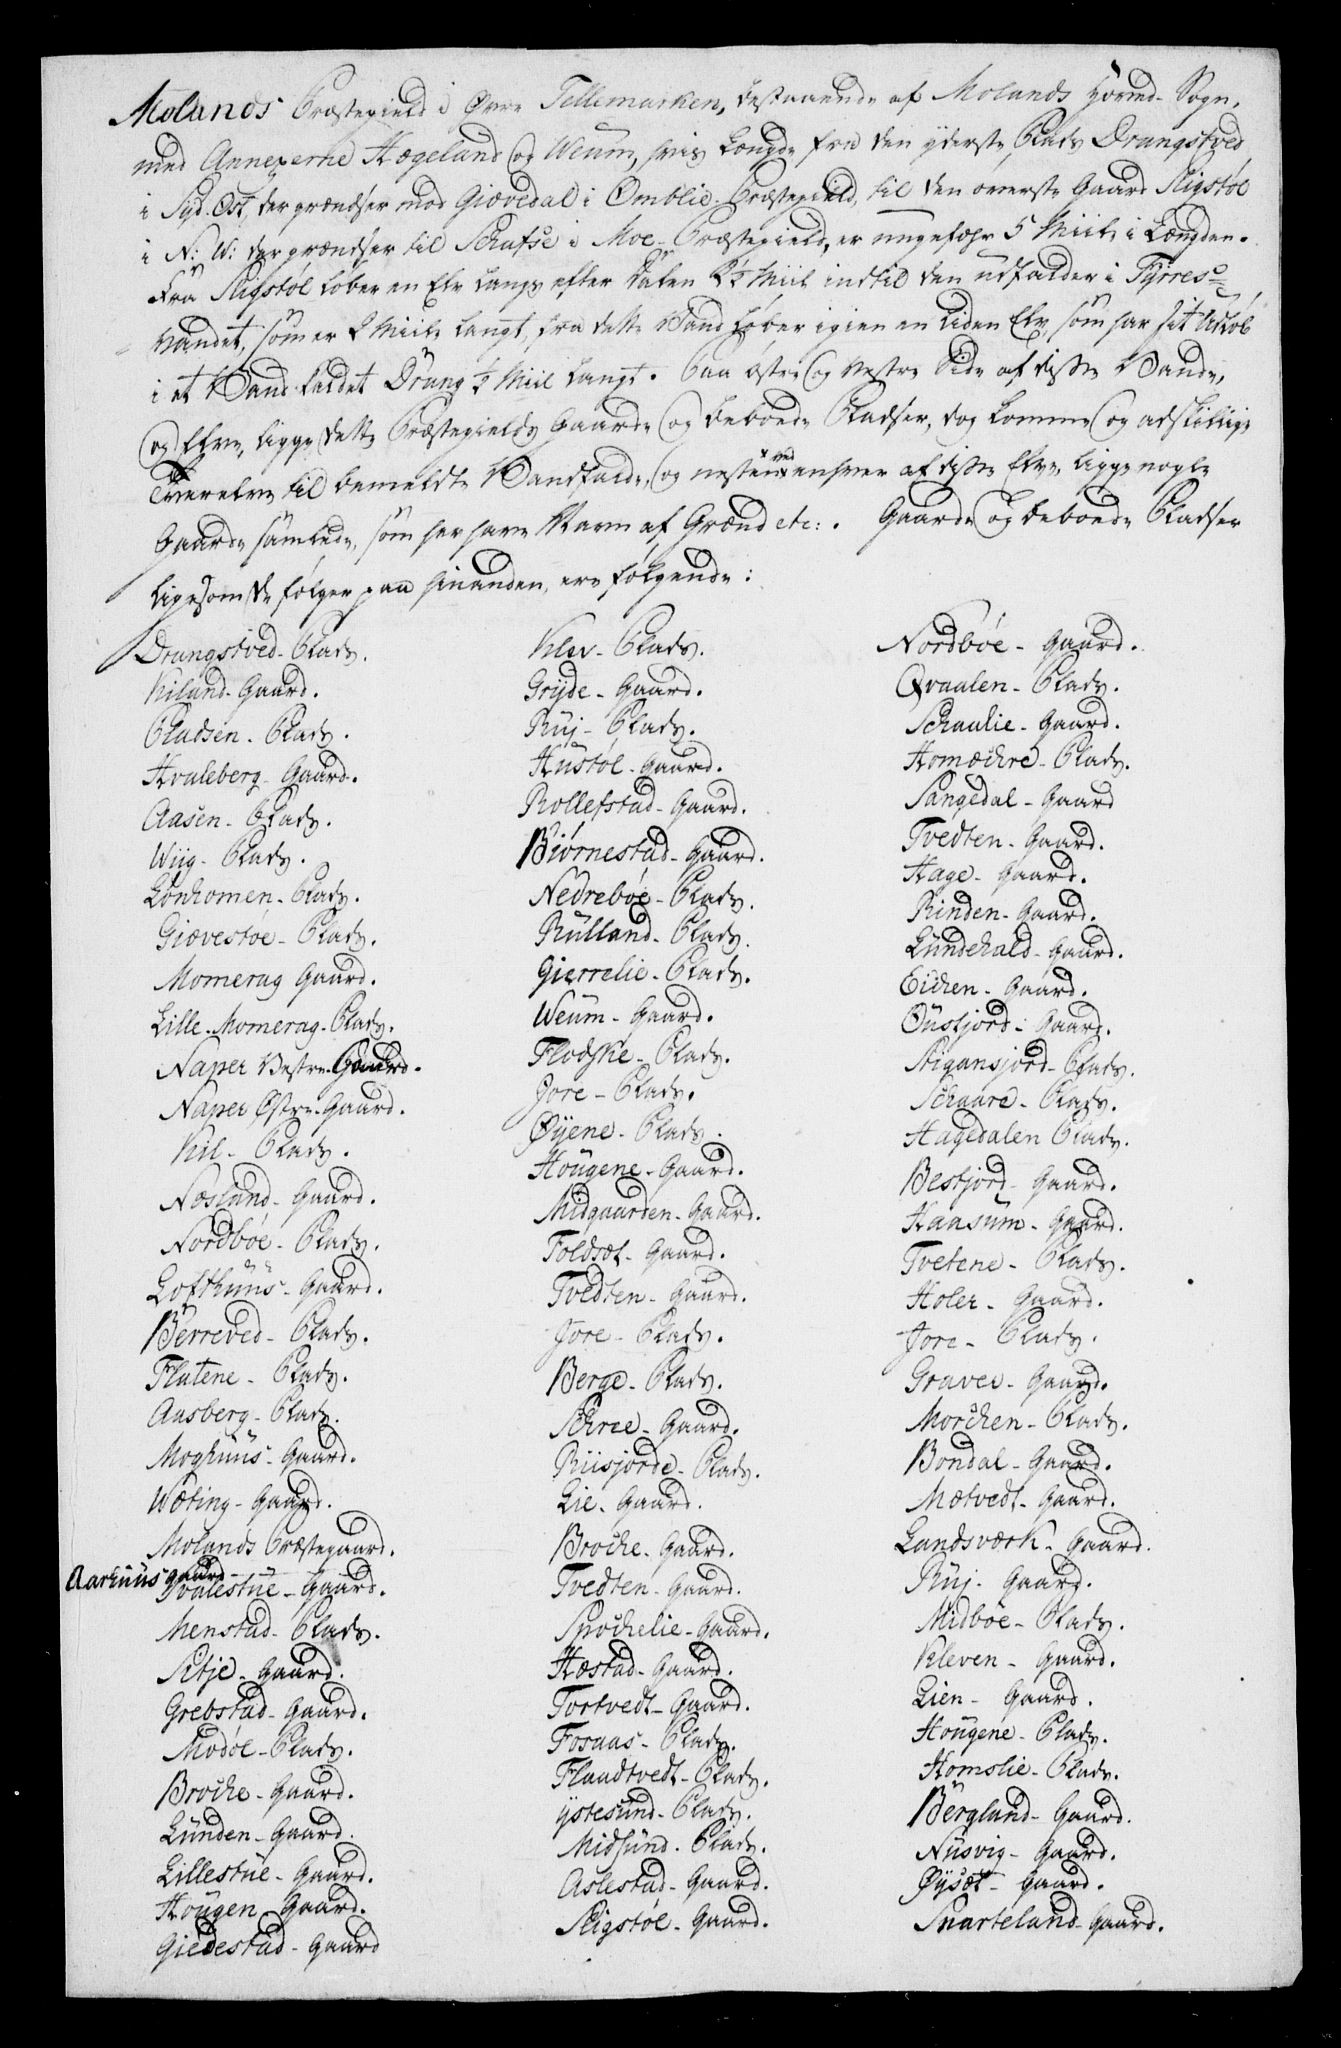 Molands Præstegield i Øvre Tellemarken, bestaaende af Molands Hoved-Sogn,
med Annexerne Hægeland og Weum, hvis Længde fra den yderste Plads Drangstved
i Syd-Ost, der grændser mod Giøvedal i Omblie-Præstegield, til den øverste Gaard Sligstøl
i N: W: der grændser til Schafse i Moe-Præstegield, er ungefehr 5 Miile i Længden.
Fra Sligstøl løber en Elv langs efter Dalen 2½ Miil indtil den udfalder i Tyrres-
vandet, som er 2 Miile langt, fra dette Vand løber igien en liden Elv, som har sit Udløb
i et Vand kaldet Drang ½ Miil langt. Paa østre og vestre Side af disse Vande,
og Elve, ligge dette Præstegields Gaarde og beboede Pladser, dog komme og adskillige
Tverelve til bemeldte Vandfalde, og nesten ved enhver af disse Elve, ligge nogle
Gaarde samlede, som her have Navn af Grænd etc:. Gaarde og beboede Pladser
ligesom de følger paa hinanden, ere følgende:
Drangstved- Plads.
Kiland- Gaard.
Pladsen- Plads.
Hvaleberg- Gaard.
Aasen- Plads.
Wiig- Plads.
Lönkomen- Plads.
Giævestøe- Plads.
Momerag Gaard.
Lille-Momerag- Plads.
Naper Vestre- Gaard.
Naper Østre- Gaard.
Kil- Plads.
Næsland- Gaard.
Nordbøe- Plads.
Lofthuus- Gaard.
Berreved- Plads.
Flatene- Plads.
Aasberg- Plads.
Moghuus- Gaard.
Wæting- Gaard.
Molands Præstegaard.
Aarhuus gaard
Ivalestue- Gaard.
Menstad- Plads.
Sitje- Gaard.
Grebstad- Gaard.
Modøl- Plads.
Brocke- Gaard.
Lunden- Gaard.
Lillestue- Gaard.
Hougen- Gaard.
Giedestad- Gaard
Klev- Plads.
Gryde- Gaard.
Ruj- Plads.
Hustøl- Gaard.
Rollefstad- Gaard.
Biørnestad- Gaard.
Nedrebøe- Plads.
Rulland- Plads.
Gierrelie- Plads.
Weum- Gaard.
Flodske- Plads.
Jore- Plads.
Øyene- Plads.
Hougene- Gaard.
Midgaarden- Gaard.
Foldsæt- Gaard.
Tvedten- Gaard.
Jore- Plads.
Berge- Plads.
Schree- Gaard.
Riisjorde- Plads.
Lie- Gaard.
Brocke- Gaard.
Tvedten- Gaard.
Sprochelie- Gaard.
Hæstad- Gaard.
Tortvedt- Gaard.
Fosaas- Plads.
Flaadtvedt- Plads.
Ystesund- Plads.
Midsund- Plads.
Aslestad- Gaard.
Sligstøl- Gaard.
Nordbøe- Gaard.
Qvaalen- Plads.
Schaulie- Gaard.
Homæchre- Plads.
Sangedal- Gaard
Tvedten- Gaard.
Hage- Gaard.
Rinden- Gaard.
Lundekald- Gaard.
Eichen- Gaard.
Øustjord- Gaard.
Stigansjord- Plads.
Schaare- Plads.
Hagedalen Plads.
Bestjord- Gaard.
Haasum- Gaard.
Tvetene- Plads.
Holer- Gaard.
Jore- Plads.
Graver- Gaard.
Morchen- Plads.
Bondal- Gaard.
Mætvedt- Gaard.
Landsværk- Gaard.
Ruj- Gaard.
Midbøe- Plads.
Kleven- Gaard.
Lien- Gaard.
Hougene- Plads.
Homslie- Plads.
Bergland- Gaard.
Nusvig- Gaard.
Øysæt- Gaard.
Snarteland- Gaard.